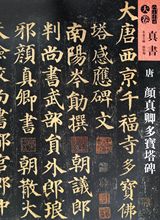 大卷
真書
唐 顏真卿多寶塔碑
大唐西京千福寺多寶佛
塔感應碑文
南陽岑勛撰 朝議郎
判尚書武部員外郎琅
邪顏真卿書 朝散大
夫檢校尚書都官郎中